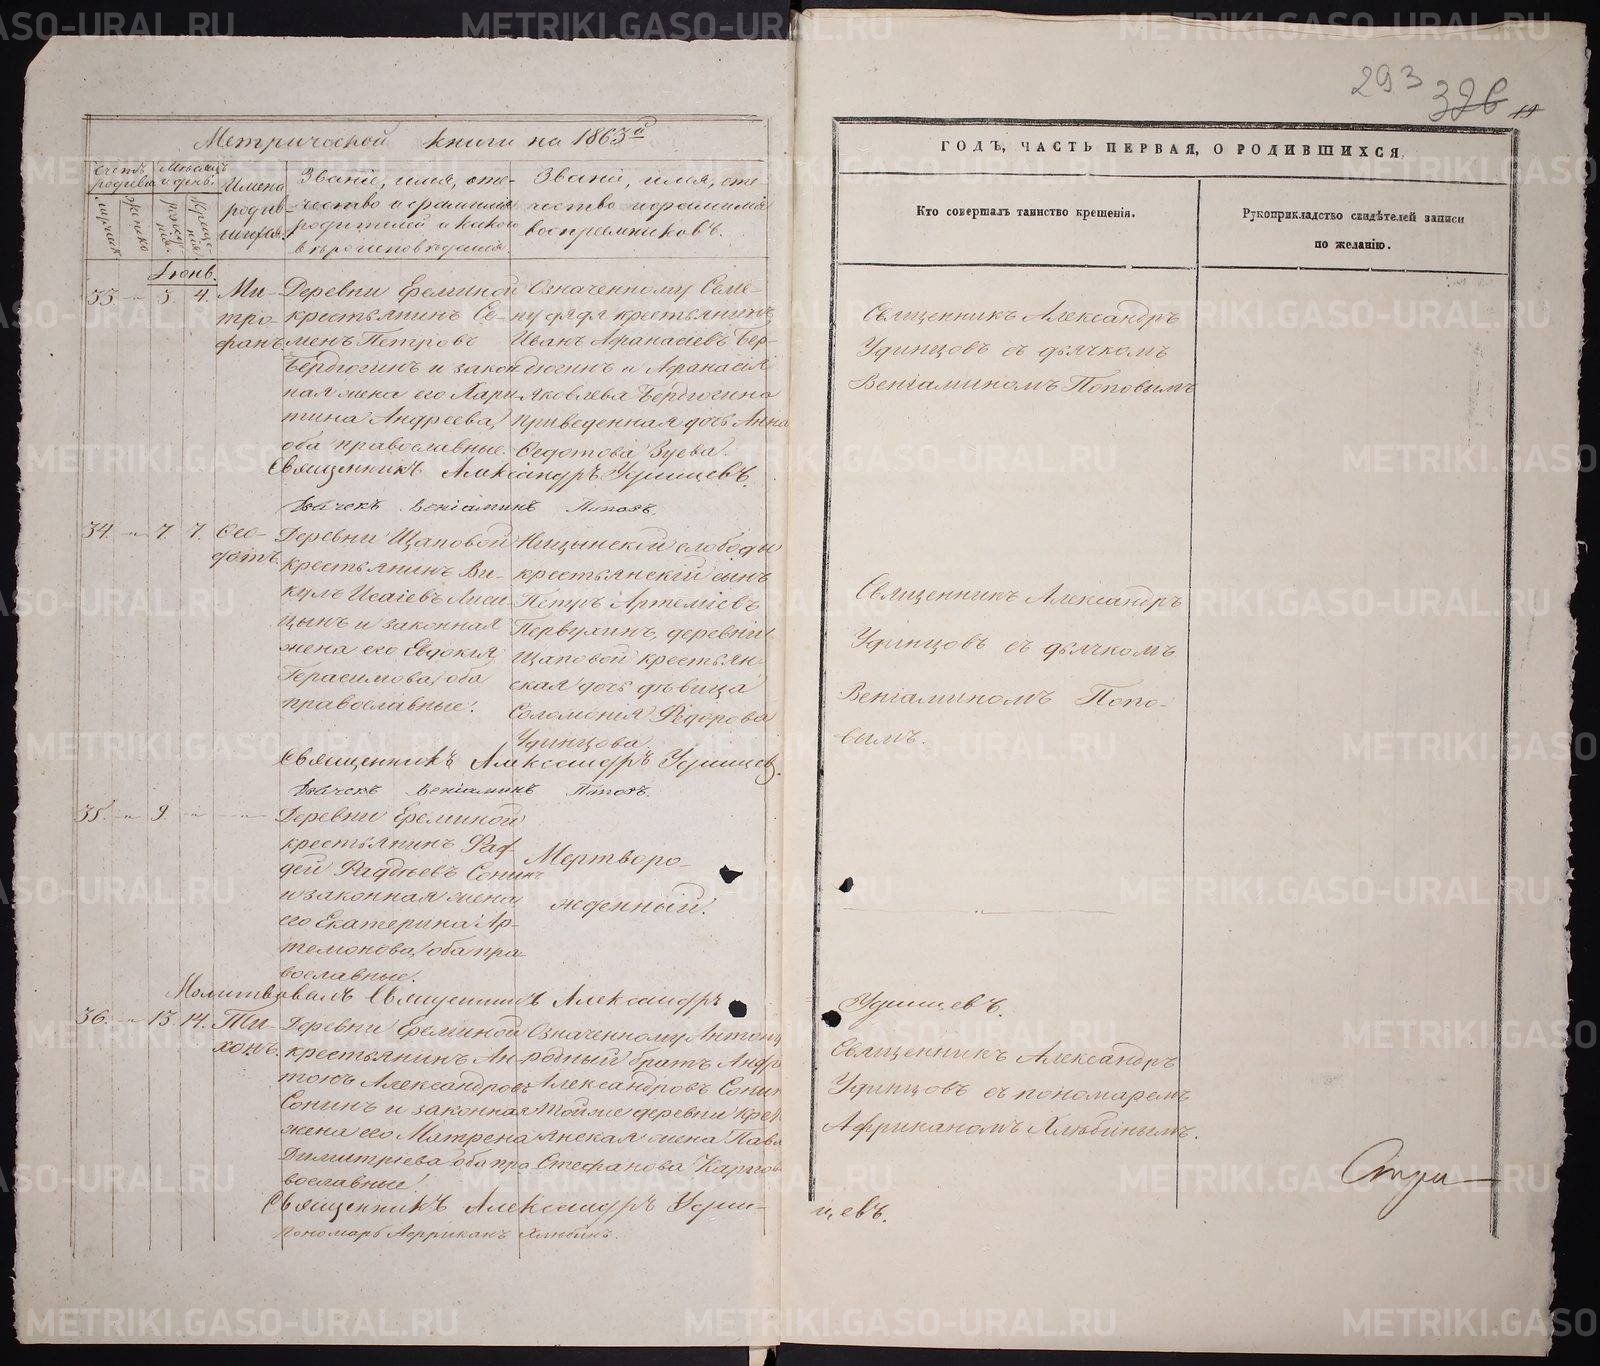 293
326
Метрической книги на 1863й
ГОДЪ, ЧАСТЬ ПЕРВАЯ, О РОДИВШИХСЯ.
Счетъ родившихся
Мѣсяцъ и день.
Имена родившихся.
Званіе, имя, отечество и фамилія родителей и какого вѣроисповѣданія.
Званіе, имя, отечество и фамилія воспріемниковъ.
Кто совершалъ таинство крещенія.
Рукоприкладство свидѣтелей записи
по желанію.
Іюнь.
33. 3. 4.
Ми-
тро-
фанъ
Деревни Ереминой
крестьянинъ Се-
менъ Петровъ
Бердюгинъ и закон
ная жена его Хари
тина Андреева,
оба православные.
Означенному Семе-
ну дядя крестьянинъ
Иванъ Афанасіевъ Бер-
дюгинъ и Афанасія
Яковлева Бердюгина
приведенная дочь Анна
Федотова Зуева.
Священникъ Александръ
Удинцовъ съ дьячкомъ
Веніаминомъ Поповымъ
Священникъ Александръ Удинцевъ.
Дьячекъ Веніаминъ Поповъ.
34. 7. 7.
Фео-
дотъ
Деревни Щаповой
крестьянинъ Ви-
кулъ Исаіевъ Лиси
цынъ и законная
жена его Евдокія
Герасимова, оба
православные.
Ницынской слободы
крестьянскій сынъ
Петръ Артеміевъ
Первухинъ, деревни
Щаповой крестьян-
ская дочь дѣвица
Соломонія Федорова
Удинцова.
Священникъ Александръ
Удинцовъ съ дьячкомъ
Веніаминомъ Попо-
вымъ.
Священникъ Александръ Удинцев.
Дьячекъ Веніаминъ Поповъ.
35. 9.
Деревни Ереминой
крестьянинъ Фад
дей Фаддѣевъ Сонинъ
и законная жена
его Екатерина Ар-
темонова, оба пра
вославные.
Мертворо-
жденный.
Молитвовалъ Священникъ Александръ Удинцевъ.
36. 13 14.
Ти-
хонъ.
Деревни Ереминой
крестьянинъ Ан-
тонъ Александровъ
Сонинъ и законная
жена его Матрена
Димитріева, оба пра
вославные.
Означенному Антону
родный братъ Андре
Александровъ Сонин
тойже деревни крес
янская жена Павл
Стефанова Каргов
Священникъ Александръ
Удинцовъ съ пономаремъ
Африканомъ Хлѣбинымъ.
Священникъ Александръ Удин-
цевъ.
Пономарь Африканъ Хлѣбинъ.